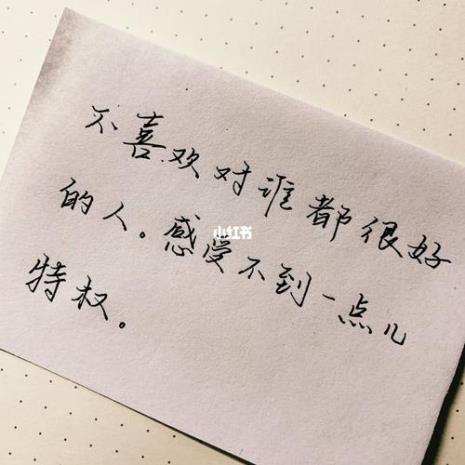 不喜欢对谁都很好
的人。感受不到一点儿
特权。
小红书